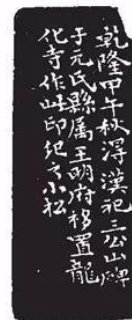 乾隆甲午秋得漢祀三公山碑
于元氏縣属王明府移置龍
化寺作此印纪之小松